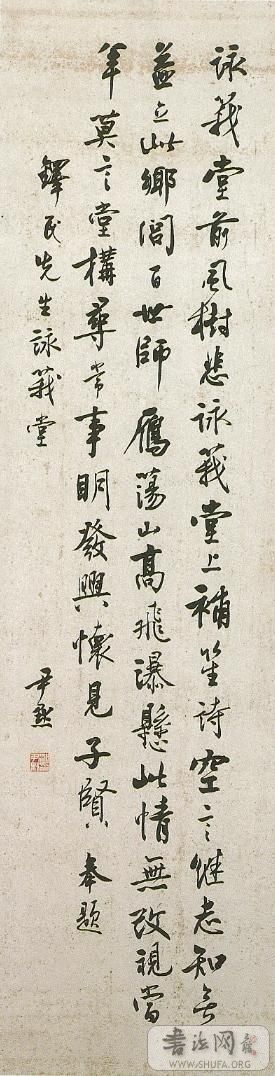 詠莪堂前風樹悲詠莪堂上補笙詩空言繼志知無
益立此鄉閭百世師雁蕩山高飛瀑懸此情無改視當
年莫言堂構尋常事明發興懷見子賢 奉題
鐸民先生詠莪堂
尹默
书法网
WWW.SHUFA.ORG